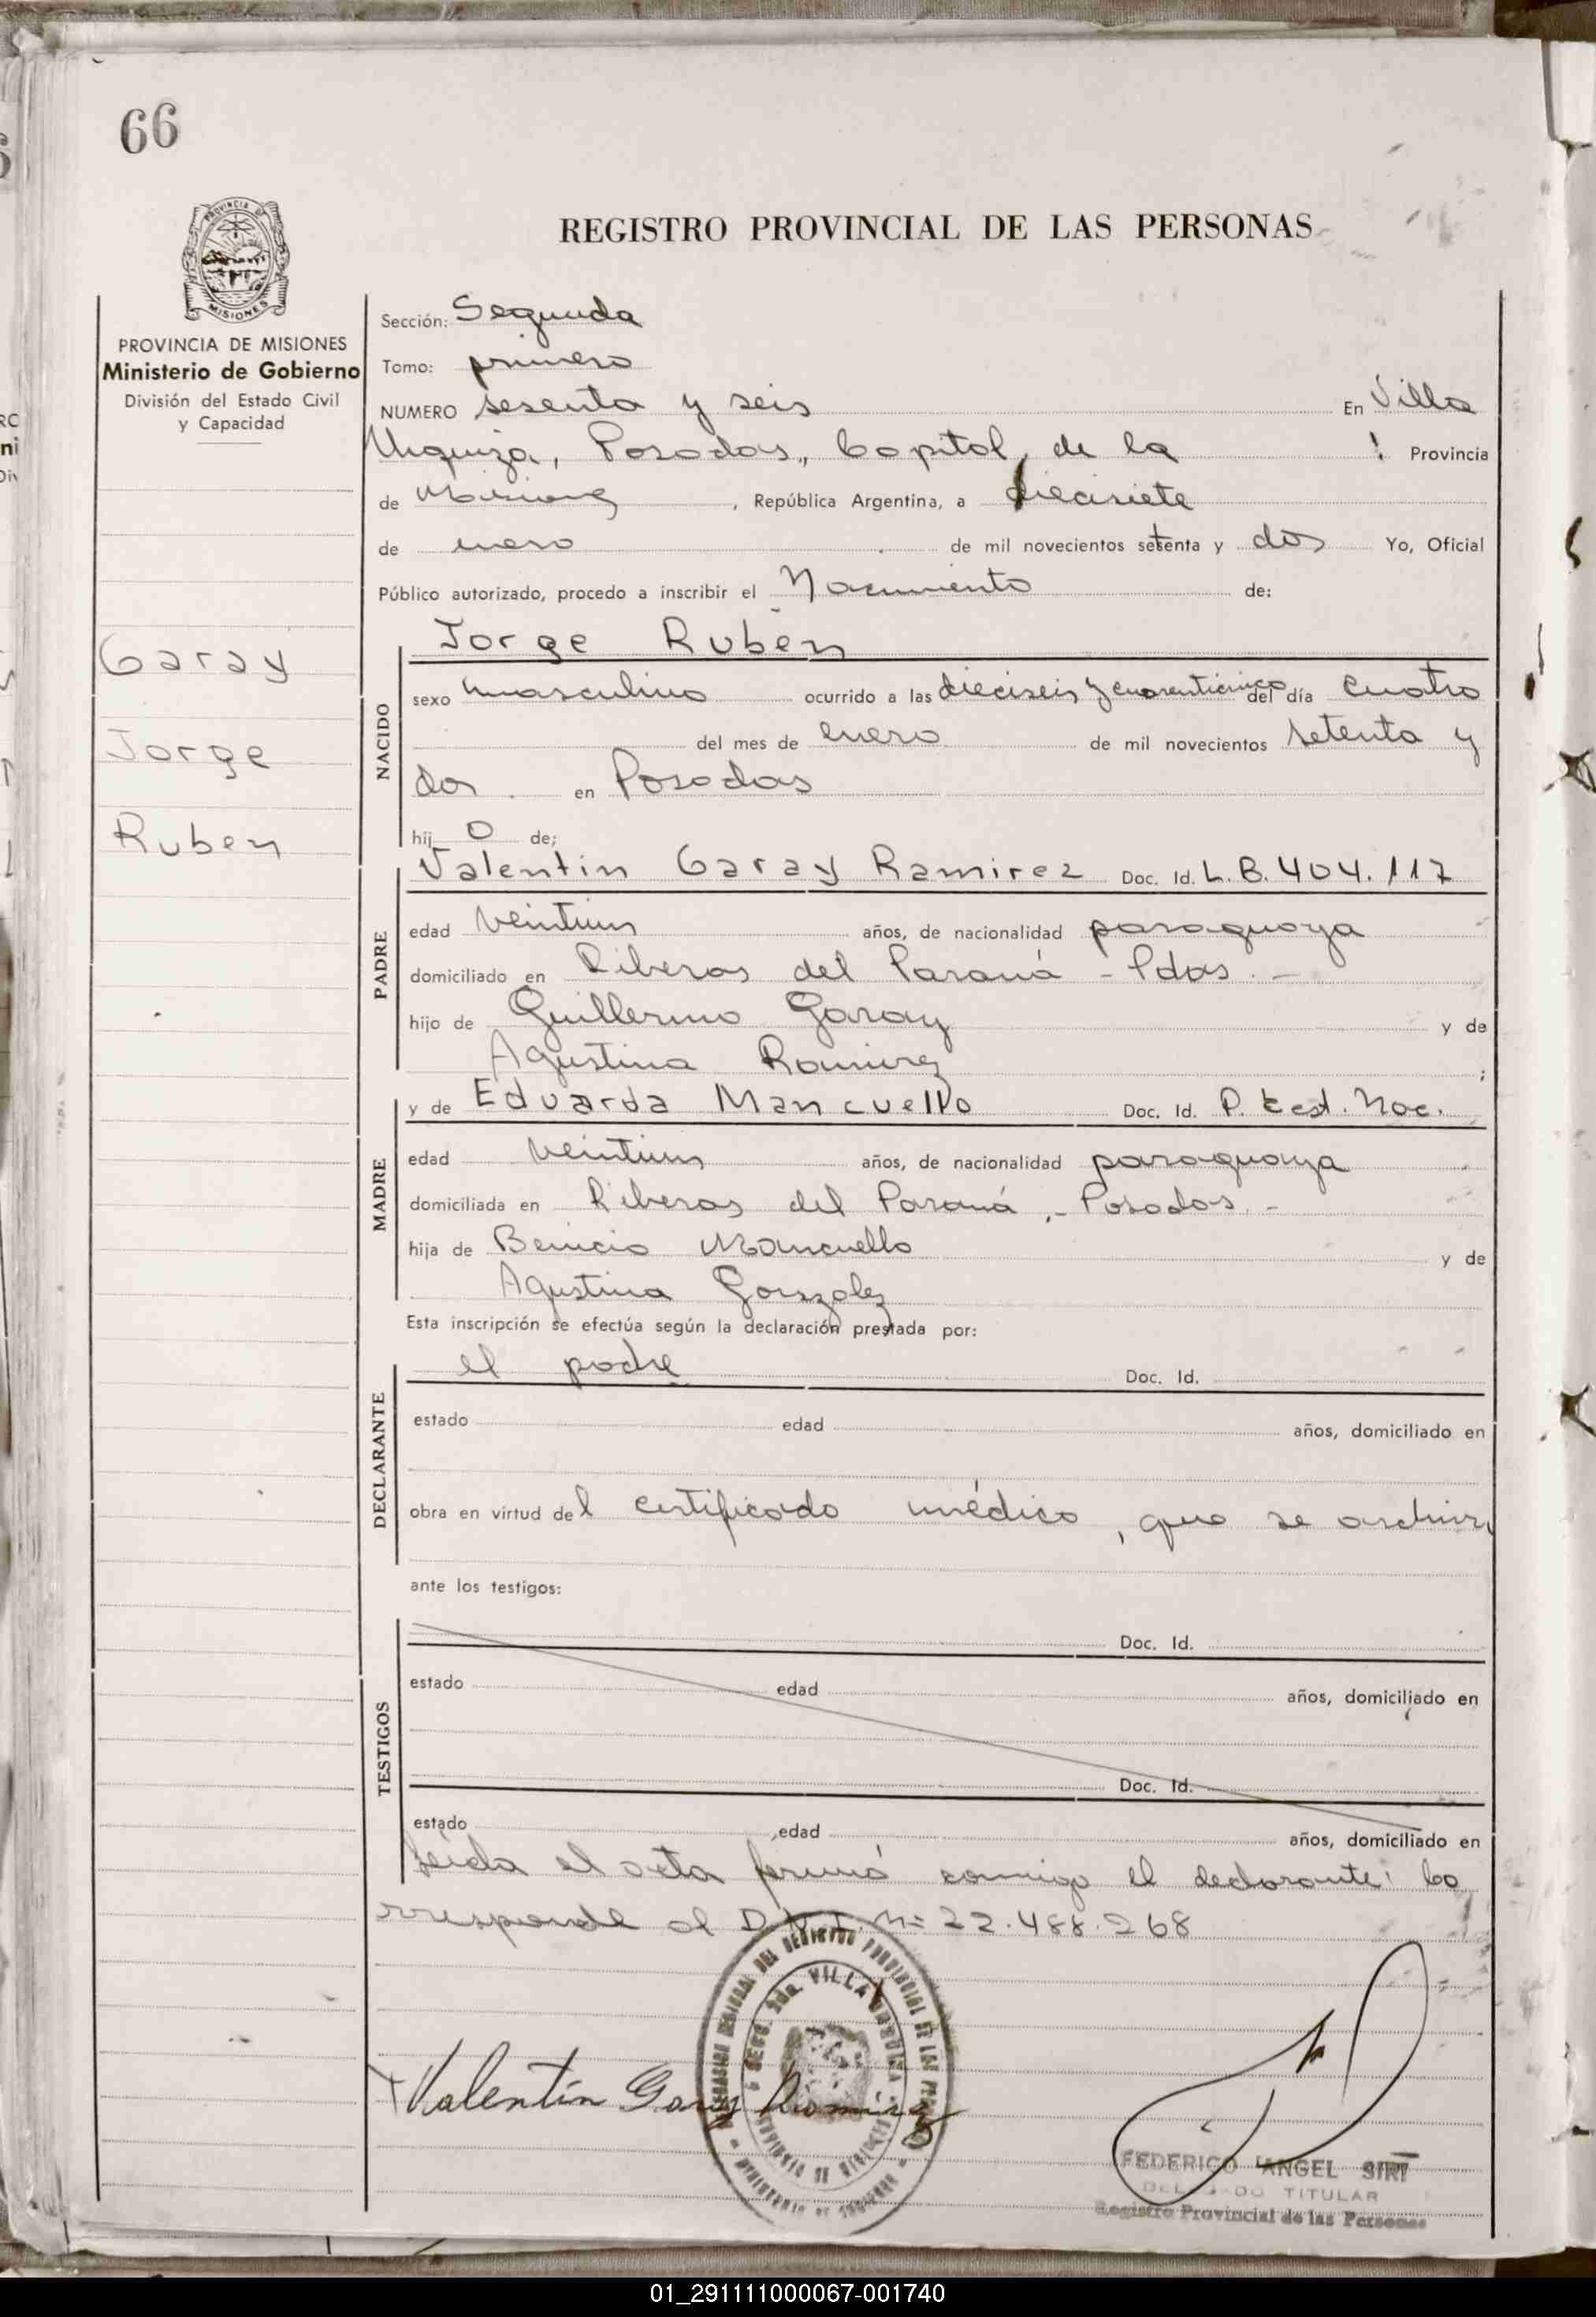 66
PROVINCIA DE
MISIONES
REGISTRO PROVINCIAL DE LAS PERSONAS
PROVINCIA DE MISIONES
Ministerio de Gobierno
División del Estado Civil
y Capacidad
Garay
Jorge
Ruben
Sección: Segunda
Tomo: primero
NUMERO sesenta y seis En Villa
Urquiza, Posadas, Capital, de la Provincia
de Misiones, República Argentina, a diecisiete
de enero de mil novecientos setenta y dos Yo, Oficial
Público autorizado, procedo a inscribir el Nacimiento de:
NACIDO
Jorge Ruben
sexo masculino ocurrido a las dieciseis y cuarenticinco del día cuatro
del mes de enero de mil novecientos setenta y
dos en Posadas
hij o de;
PADRE
Valentin Garay Ramirez Doc. Id. L.B. 404.117
edad veintiun años, de nacionalidad paraguaya
domiciliado en Riberas del Paraná - Pdas. -
hijo de Guillermo Garay y de
Agustina Ramirez ;
MADRE
y de Eduarda Mancuello Doc. Id. P. Test. Nac.
edad veintiun años, de nacionalidad paraguaya
domiciliada en Riberas del Paraná .- Posadas. -
hija de Benicio Mancuello y de
Agustina Gonzalez
Esta inscripción se efectúa según la declaración prestada por:
DECLARANTE
el padre Doc. Id.
estado edad años, domiciliado en
obra en virtud del certificado médico, que se archiva
ante los testigos:
TESTIGOS
Doc. Id.
estado edad años, domiciliado en
Doc. Id.
estado edad años, domiciliado en
Leida el acta firmó conmigo el declarante: Co
rresponde al D.N.I. Nº 22.488.268
SECC. 2da. VILLA URQUIZA
PROVINCIA DE MISIONES
MINISTERIO DE GOBIERNO
Valentín Garay Ramírez
FEDERICO ANGEL SIRI
DELEGADO TITULAR
Registro Provincial de las Personas
01_291111000067-001740